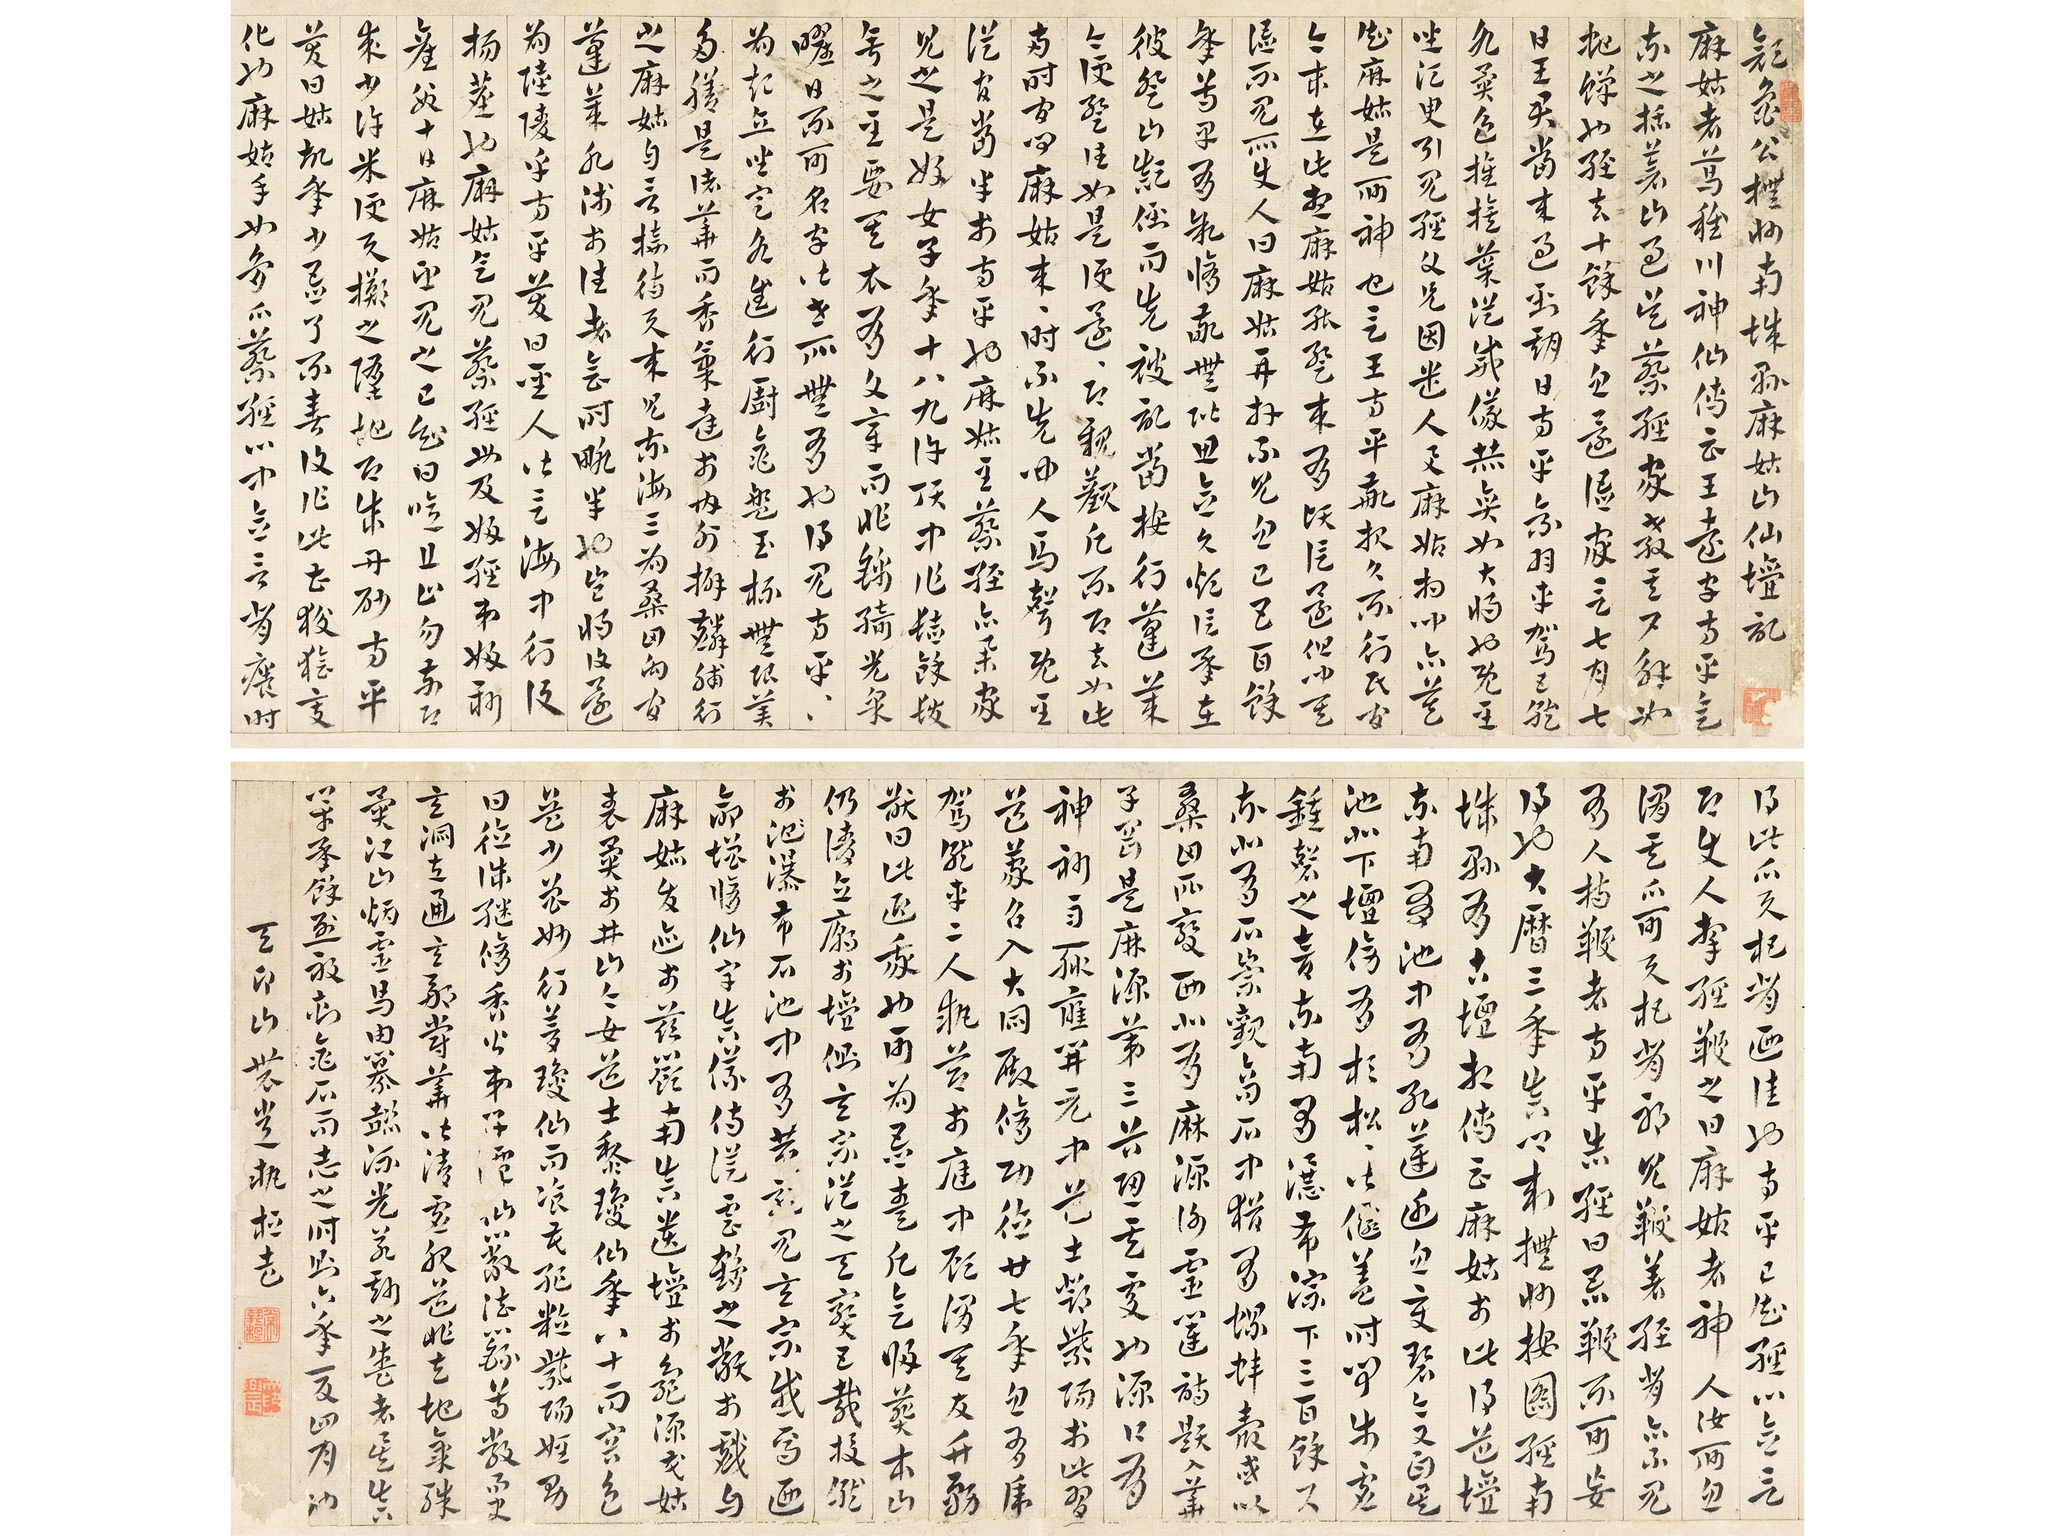 顏魯公撫州南城縣麻姑山仙壇記
麻姑者葛稚川神仙傳云王遠字方平欲
東之括蒼山過吳蔡經家教其尸解如
蛇蟬也經去十餘年忽還語家言七月七
日王君當來過到期日方平乘羽車駕五龍
各異色旌旗導從威儀赫奕如大將也既至
坐須臾引見經父兄因遣人與麻姑相聞亦莫
知麻姑是何神也言王方平敬報久不行民間
今來在此想麻姑能暫來有頃信還但聞其
語不見所使人曰麻姑再拜不見忽已五百餘
年尊卑有序修敬無階思念久煩信承在
彼登山顛倒而先被記當按行蓬萊
今便暫往如是便還還即親覲願不即去如此
兩時間麻姑來來時不先聞人馬聲既至
從官當半於方平也麻姑至蔡經亦舉家
見之是好女子年十八九許頂中作髻餘髮
垂之至要其衣有文章而非錦綺光彩
耀日不可名字皆世所無有也得見方平方平
為起立坐定各進行廚金盤玉杯無限美
多膳是諸華而香氣達於內外擗麟脯行
之麻姑自言接待以來見東海三為桑田向間
蓬萊水淺於往者會時略半也豈將復還
為陸陵乎方平笑曰聖人皆言海中行復
揚塵也麻姑欲見蔡經母及婦經弟婦新
產數十日麻姑望見之已知曰噫且止勿前即
求少許米便以擲之墮地即成丹砂方平
笑曰姑故年少吾了不喜復作此曹狡獪變
化也麻姑手如鳥爪蔡經心中念言背癢時
得此爪以杷背迺佳也方平已知經心念言
即使人牽經鞭之曰麻姑者神人汝何忽
謂其爪可以杷背耶見鞭著經背亦不見
有人持鞭者方平告經曰吾鞭不可妄
得也大曆三年真卿刺撫州按圖經南
城縣有古壇相傳云麻姑於此得道壇
東南有池中有紅蓮近忽變碧今又白矣
池北下壇傍有杉松松皆偃蓋時聞步虛
鐘磬之音東南有瀑布淙下三百餘尺
東北有石崇觀高石中猶有螺蚌殼或以
桑田所變西北有麻源謝靈運詩題入華
子崗是麻源第三谷恐其處也源口有
神祈雨輒應開元中道士鄧紫陽於此習
道蒙召入大同殿修功德廿七年忽見虎
駕龍車二人執節於庭中顧謂其友竹務
猷曰此迎我也可為吾奏願欲歸葬本山
仍請立廟於壇側玄宗從之天寶五載投龍
於池瀑布石池中有黃龍見玄宗感焉迺
命增修仙宇真儀侍從雲鶴之類於戲自
麻姑發迹於茲嶺南真遺壇於龜源花姑
表異於井山今女道士黎瓊仙年八十而容色
益少曾妙行夢瓊仙而飡花絕粒紫陽姪男
曰德誠繼修香火弟子譚仙巖法籙尊嚴而史
玄洞左通玄鄒鬱華皆清虛服道非夫地氣殊
異江山炳靈焉由纂懿流光若斯之盛者矣真
卿幸承餘烈敢刻金石而志之時則六年夏四月也
天印山農常執桓書